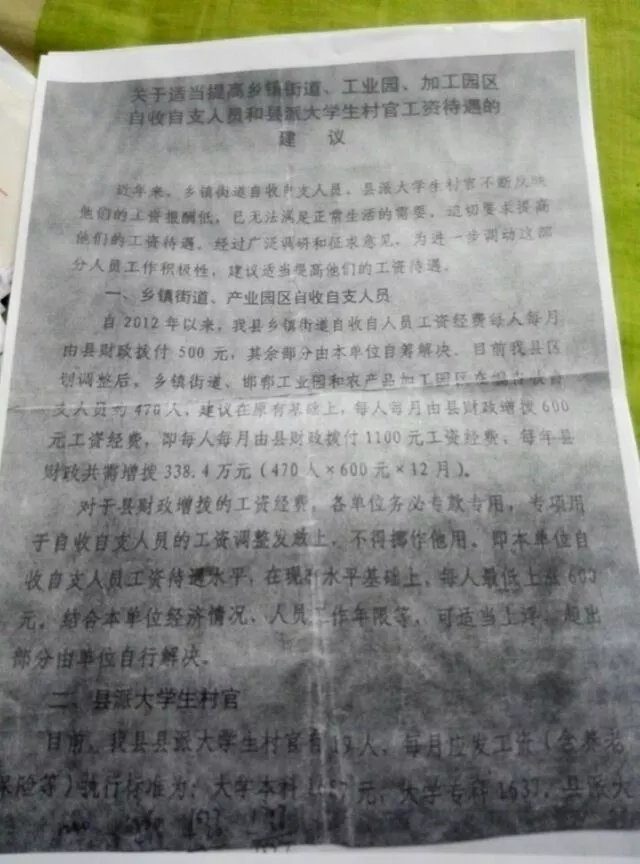 关于适当提高乡镇街道、工业园、加工园区
自收自支人员和县派大学生村官工资待遇的
建 议
近年来，乡镇街道自收自支人员、县派大学生村官不断反映
他们的工资报酬低，已无法满足正常生活的需要，迫切要求提高
他们的工资待遇。经过广泛调研和征求意见，为进一步调动这部
分人员工作积极性，建议适当提高他们的工资待遇。
一、乡镇街道、产业园区自收自支人员
自 2012 年以来，我县乡镇街道自收自人员工资经费每人每月
由县财政拨付 500 元，其余部分由本单位自筹解决。目前我县区
划调整后，乡镇街道、邯郸工业园和农产品加工园区在编自收自
支人员约 470 人，建议在原有基础上，每人每月由县财政增拨 600
元工资经费，即每人每月由县财政拨付 1100 元工资经费，每年县
财政共需增拨 338.4 万元（470 人×600 元×12 月）。
对于县财政增拨的工资经费，各单位务必专款专用，专项用
于自收自支人员的工资调整发放上，不得挪作他用。即本单位自
收自支人员工资待遇水平，在现有水平基础上，每人最低上涨 600
元，结合本单位经济情况、人员工作年限等，可适当上浮，超出
部分由单位自行解决。
二、县派大学生村官
目前，我县县派大学生村官有 人，每月应发工资（含养老
保险等）执行标准为：大学本科 元，大学专科 1637，县派大